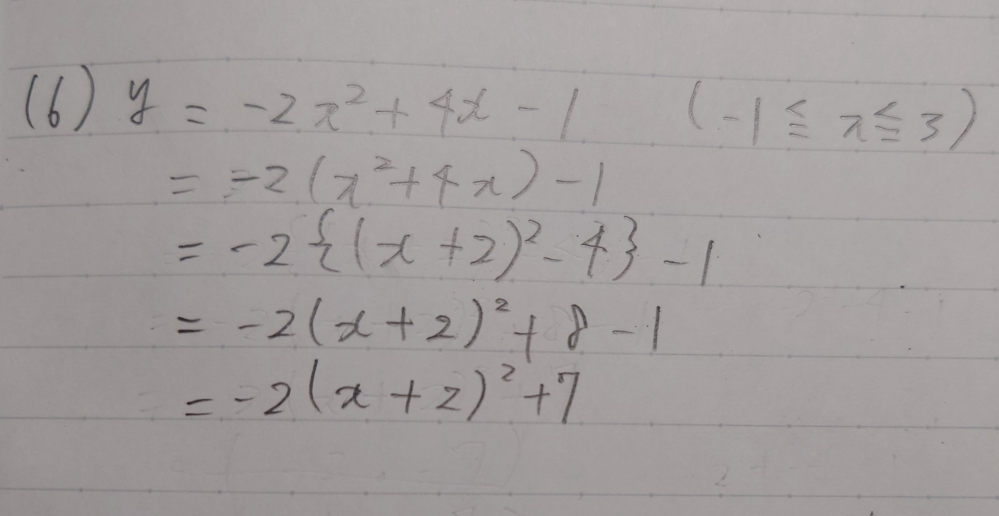 (6) y = -2x² + 4x - 1 (-1 ≦ x ≦ 3)
= -2(x² + 4x) - 1
= -2{(x + 2)² - 4} - 1
= -2(x + 2)² + 8 - 1
= -2(x + 2)² + 7